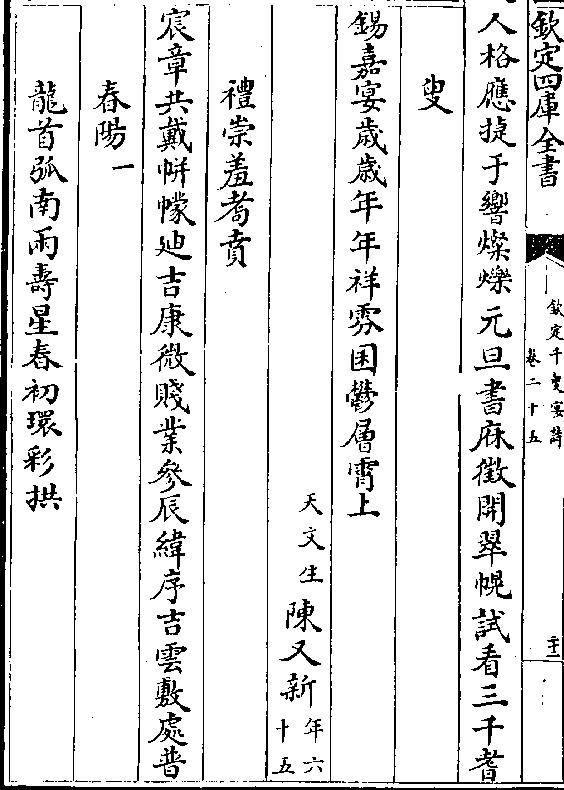 欽定四庫全書
欽定千叟宴詩
卷二十五
二十一
人格應捷于響燦爍元旦書麻徵開翠幌試看三千耆
叟
錫嘉宴歲歲年年祥雰囷鬱層霄上
天文生陳又新年六十五
禮崇羞耇賁
宸章共戴帡幪廸吉康微賤業參辰緯序吉雲敷處普
春陽一
龍首弧南兩壽星春初環彩拱